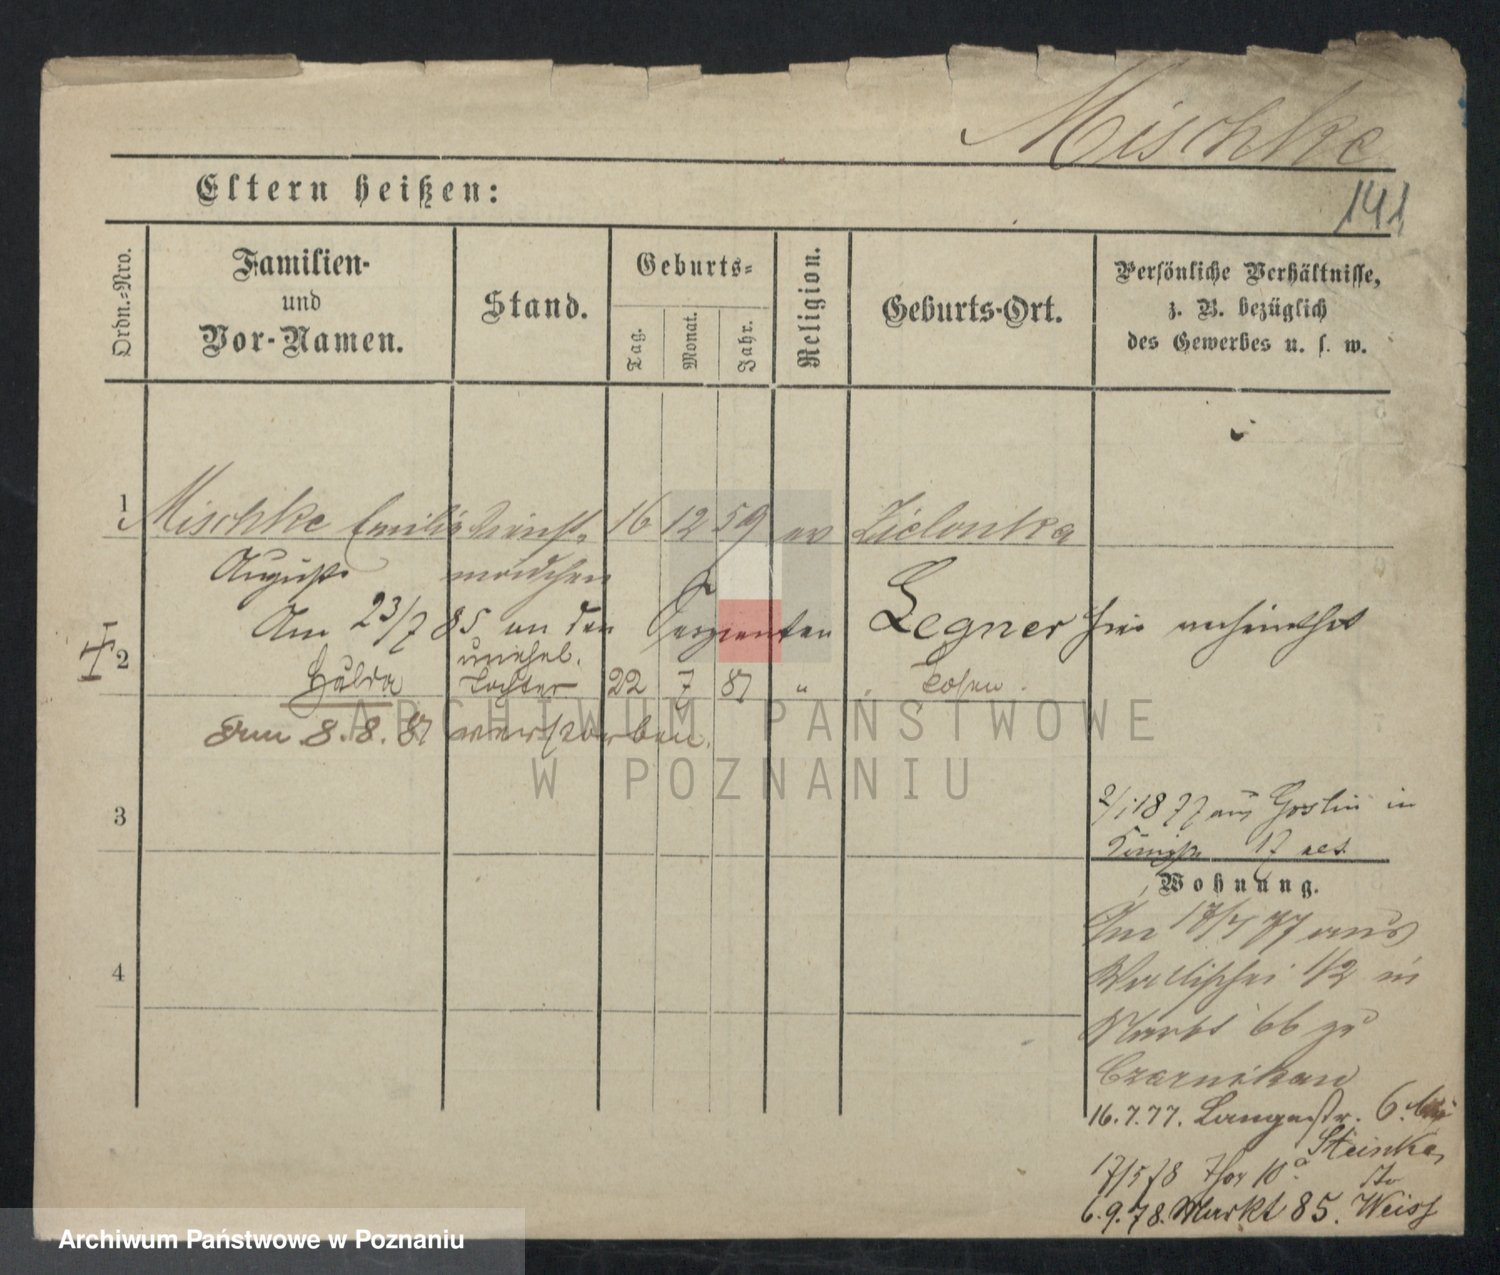 Mischke
141
Eltern heißen:
Ordn.-Nro.
Familien-
und
Vor-Namen.
Stand.
Geburts-
Tag.
Monat.
Jahr.
Religion.
Geburts-Ort.
Persönliche Verhältnisse,
z. B. bezüglich
des Gewerbes u. s. w.
1 Mischke Emilie Dienst- 16 12 59 ev Zielonka
Auguste mädchen
Am 23/7 85 an den Sergeanten Legner hier verheirathet
2 Hulda unehel. Tochter 22 7 81 " Posen.
Am 8. 8. 81 verstorben.
ARCHIWUM PAŃSTWOWE
W POZNANIU
3
2/1 1877 aus Goslin in
17
Wohnung.
4
Am 17/4 77 aus
Wallischei 1/2 in
Markt 66 zu
Czarnikau
16.7.77. Langestr. 6. bei
Steinke
17/5 78 Thor 10a. do
6.9.78. Markt 85. Weiss
Archiwum Państwowe w Poznaniu